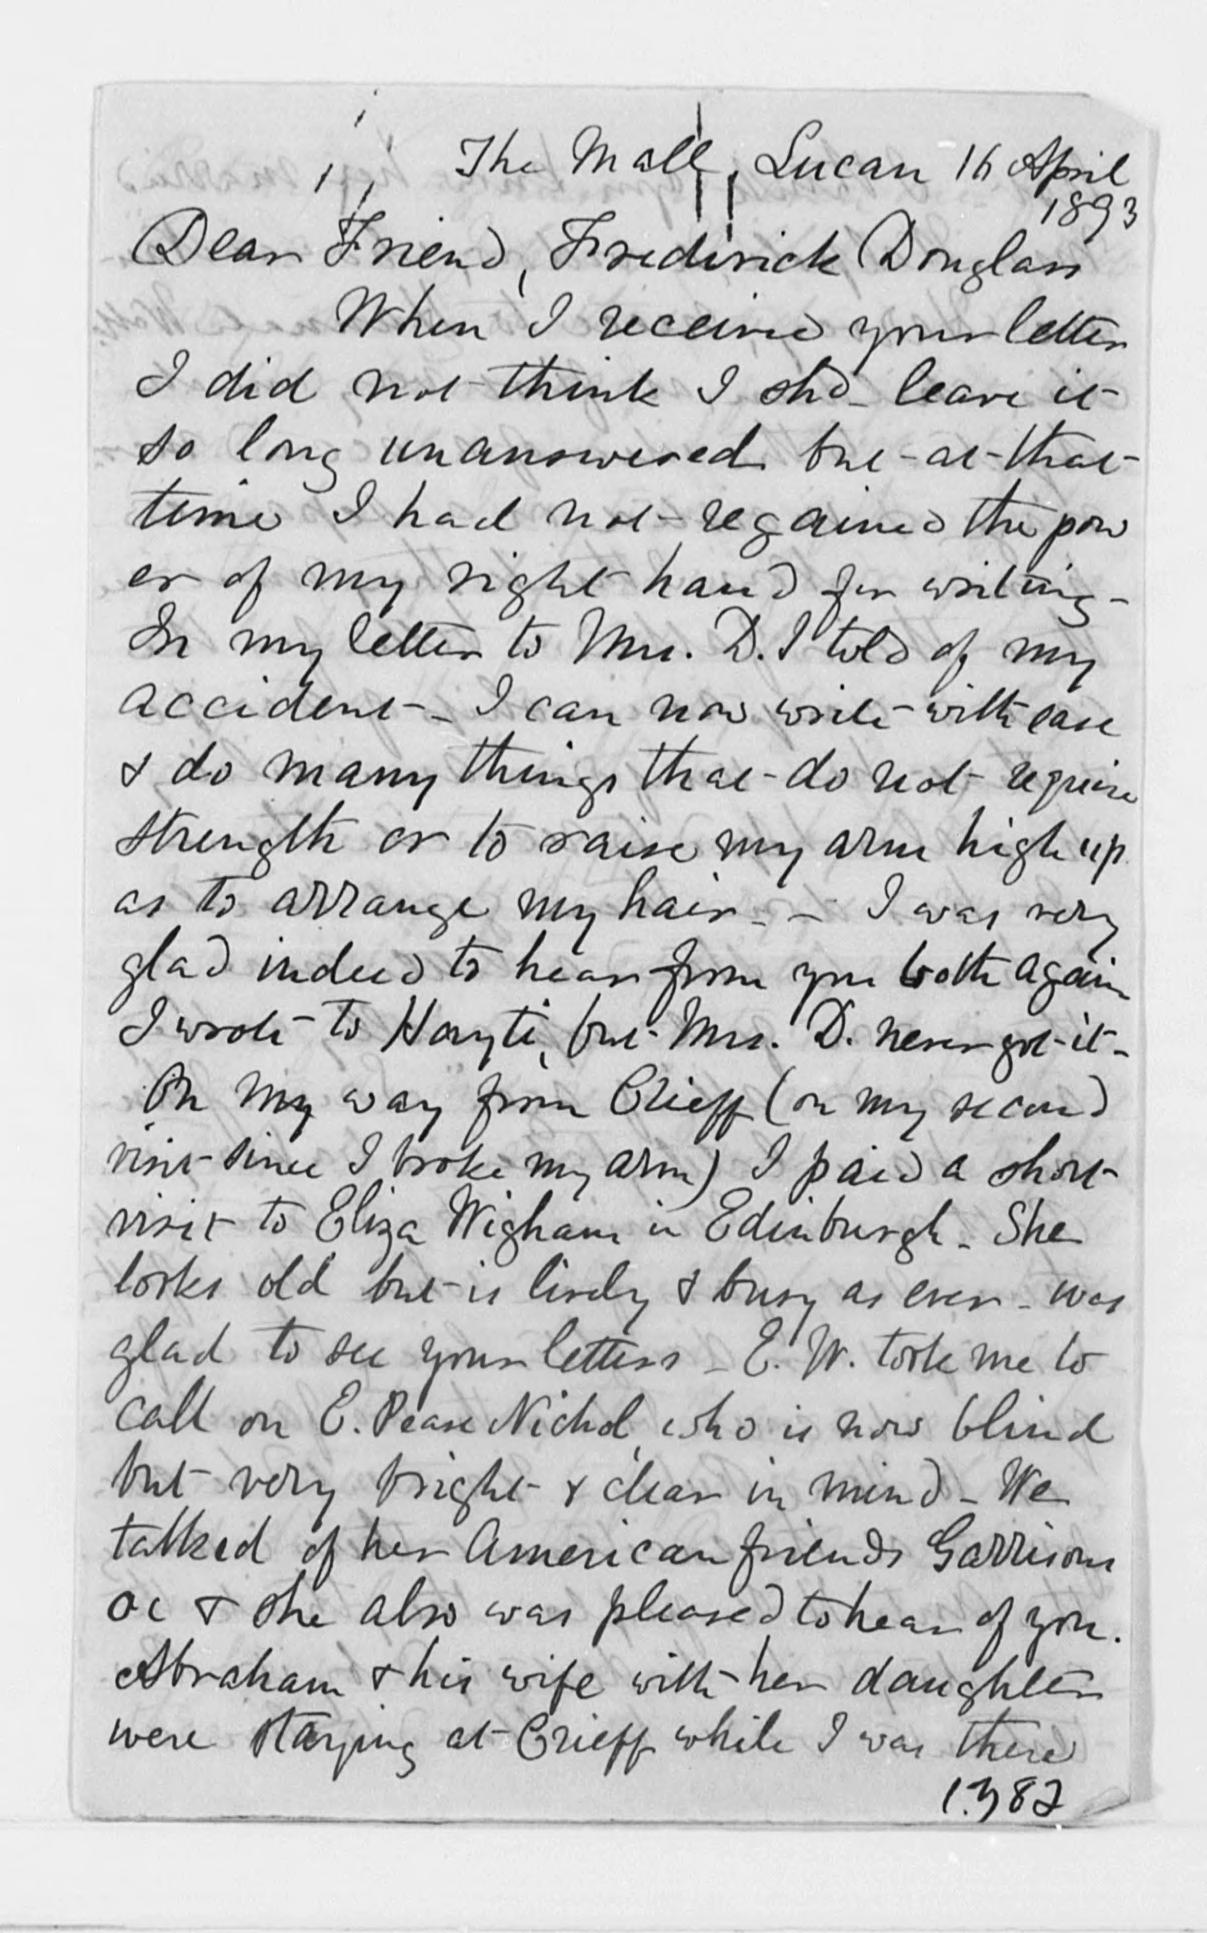 The Mall, Lucan 16 April
1893
Dear Friend, Frederick Douglass
When I received your letter
I did not think I shd. leave it
so long unanswered but at that
time I had not regained the pow
er of my right hand for writing -
In my letter to Mrs. D. I told of my
accident - I can now write with ease
& do many things that do not require
strength or to raise my arm high up
as to arrange my hair - - I was very
glad indeed to hear from you both again
I wrote to Hayti, but Mrs. D. never got it -
On my way from Crieff (on my second
visit since I broke my arm) I paid a short
visit to Eliza Wigham in Edinburgh - She
looks old but is lively & busy as ever - was
glad to see your letters - E. W. took me to
call on E. Pease Nichol, who is now blind
but very bright & clear in mind - We
talked of her American friends Garrisons
&c & she also was pleased to hear of you.
Abraham & his wife with her daughter
were staying at Crieff while I was there
1382